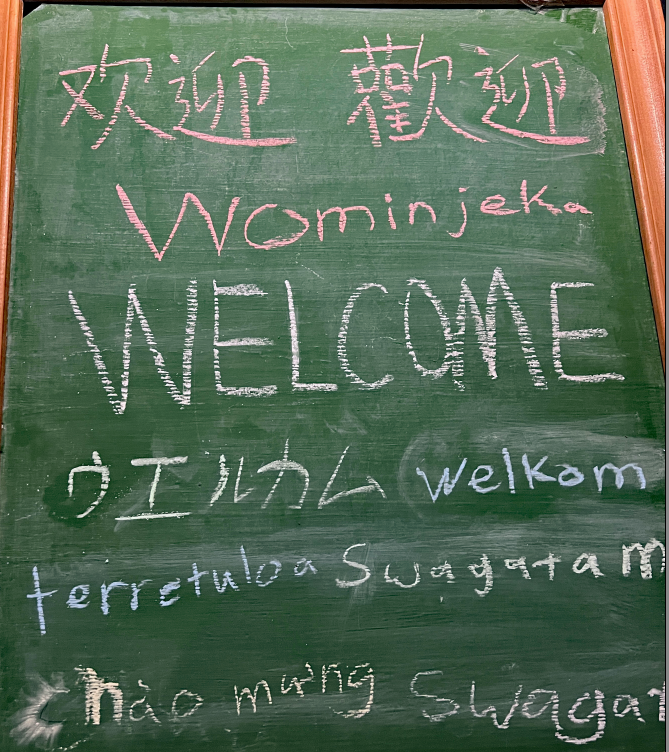 欢迎 歡迎
Wominjeka
WELCOME
ウエルカム Welkom
terretuloa Swagatam
chào mừng Swagat